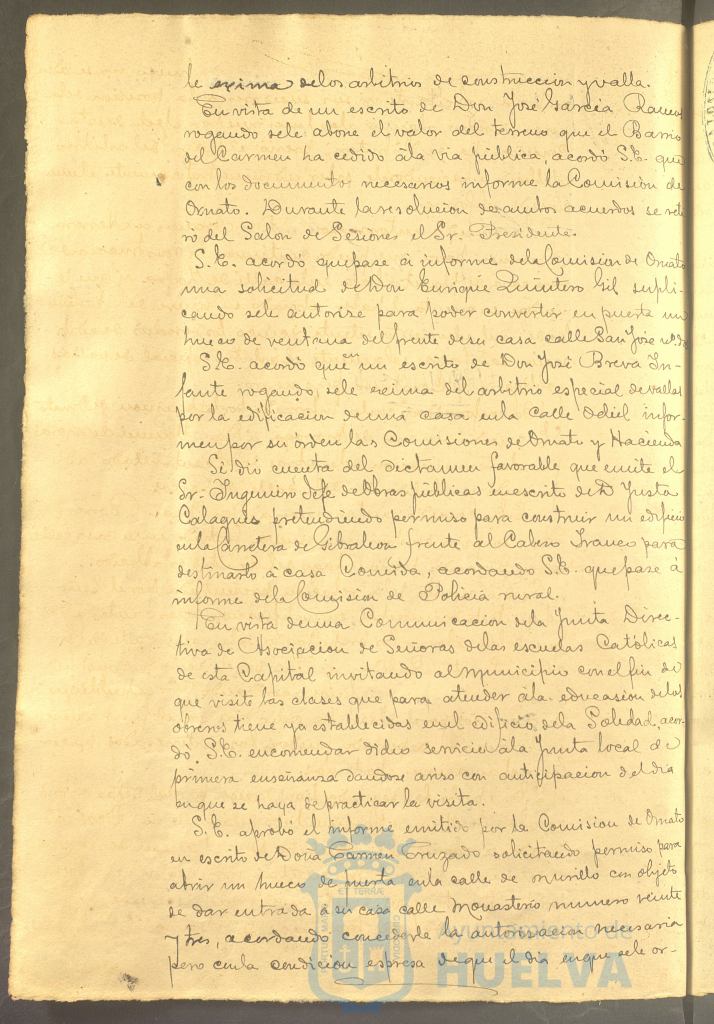 le exima de los arbitrios de construccion y valla.
En vista de un escrito de Don José García Ramos
rogando se le abone el valor del terreno que el Barrio
del Carmen ha cedido á la via pública, acordó S.E. que
con los documentos necesarios informe la Comision de
Ornato. Durante la resolucion de ambos acuerdos se reti
ró del Salon de Sesiones el Sr. Presidente.
S.E. acordó que pase á informe de la Comision de Ornato
una solicitud de Don Enrique Quintero Gil supli-
cando se le autorize para poder convertir en puerta un
hueco de ventana del frente de su casa calle San José nº
S.E. acordó que en un escrito de Don José Breva In-
fante rogando se le exima del arbitrio especial de vallas
por la edificacion de una casa en la calle Odiel infor-
men por su órden las Comisiones de Ornato y Hacienda
Se dió cuenta del dictamen favorable que emite el
Sr. Ingeniero Jefe de Obras públicas en escrito de D Justo
pretendiendo permiso para construir un edificio
en la Carretera de Gibraleon frente al Cabezo para
destinarlo á casa Comida, acordando S.E. que pase á
informe de la Comision de Policia rural.
En vista de una Comunicacion de la Junta Direc-
tiva de Asociacion de Señoras de las escuelas Católicas
de esta Capital invitando al Municipio con el fin de
que visite las clases que para atender á la educasion de los
obreros tiene ya establecidas en el edificio de la Soledad, acor-
dó S.E. encomendar dicho servicio á la Junta local de
primera enseñanza dandose aviso con anticipacion del dia
en que se haya de practicar la visita.
S.E. aprobó el informe emitido por la Comision de Ornato
en escrito de Doña Carmen Cruzado solicitando permiso para
abrir un hueco de puerta en la calle de Murillo con objeto
de dar entrada á su casa calle Monasterio numero veinte
y tres, acordando concederle la autorisacion necesaria
pero con la condicion espresa de que el dia en que se le or-
Ayuntamiento de
HUELVA